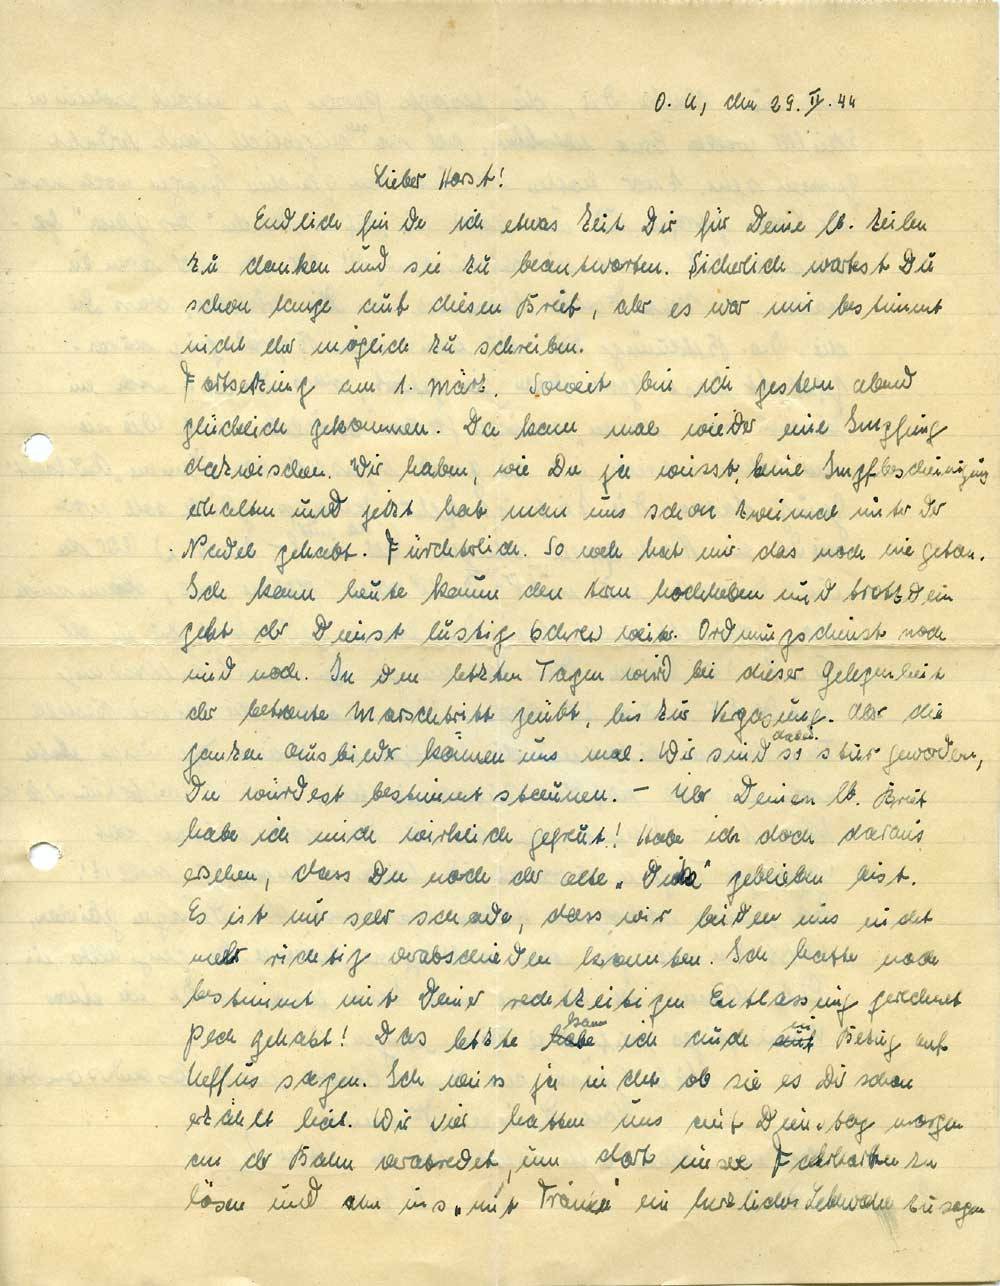 O. U, den 29. II. 44
Lieber Horst!
Endlich finde ich etwas Zeit Dir für Deine lb. Zeilen
zu danken und sie zu beantworten. Sicherlich wartest Du
schon lange auf diesen Brief, aber es war mir bestimmt
nicht eher möglich zu schreiben.
Fortsetzung am 1. März. Soweit bin ich gestern abend
glücklich gekommen. Da kam mal wieder eine Impfung
dazwischen. Wir haben, wie Du ja weisst, keine Impfbescheinigung
erhalten und jetzt hat man uns schon zweimal unter der
Nadel gehabt. Fürchterlich. So weh hat mir das noch nie getan.
Ich kann heute kaum den Arm hochheben und trotzdem
geht der Dienst lustig weiter. Ordnungsdienst noch
und noch. In den letzten Tagen wird bei dieser Gelegenheit
der betonte Marschtritt geübt, bis zur Vergasung. Aber die
ganzen Ausbilder können uns mal. Wir sind dabei so stur geworden,
Du würdest bestimmt staunen. – Über Deinen lb. Brief
habe ich mich wirklich gefreut! Habe ich doch daraus
ersehen, dass Du noch der alte „ " geblieben bist.
Es ist nur sehr schade, dass wir beiden uns nicht
mehr richtig verabschieden konnten. Ich hatte noch
bestimmt mit Deiner rechtzeitigen Entlassung gerechnet
Pech gehabt! Das letzte kann ich auch in Bezug auf
sagen. Ich weiss ja nicht ob sie es Dir schon
erzählt hat. Wir vier hatten uns auf Dienstag morgen
an der Bahn verabredet, um dort unsere Fahrkarten zu
lösen und um uns „mit Tränen" ein herzliches Lebewohl zu sagen